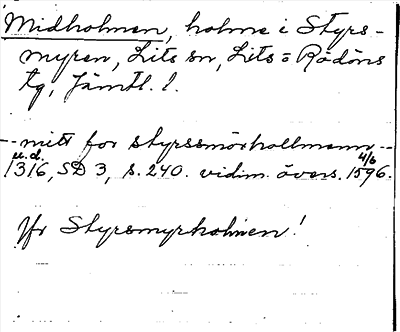 Midholmen, holme i Styrs-
myren, Lits sn, Lits o Rödöns
tg, Jämtl. l.
-- mitt for styrssmörhollmann --
u.d. 4/6
1316, SD 3, s. 240. vidim. övers. 1596.
Jfr Styrsmyrholmen!